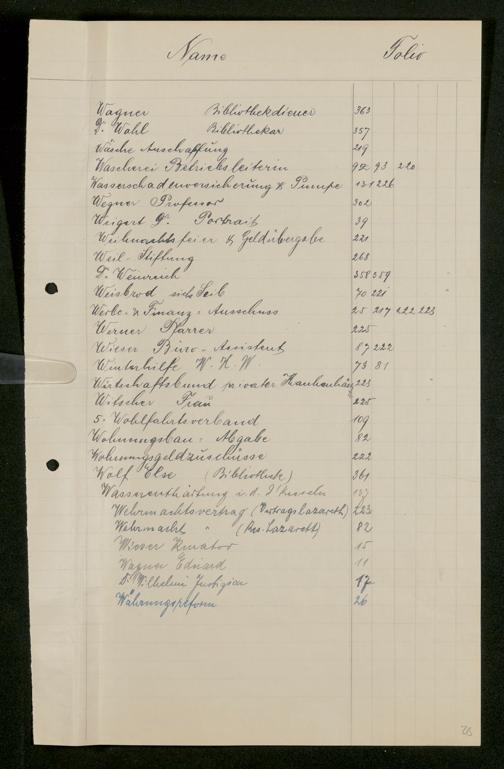 Name Folio
Wagner Bibliothekdiener 363
Dr. Wahl Bibliothekar 357
Wäsche Anschaffung 219
Wäscherei Betriebsleiterin 92 93 220
Wasserschadenversicherung & Pumpe 131 226
Wegner Professor 302
Weigert Dr. Portrait 39
Weihnachtsfeier & Geldübergabe 221
Weil-Stiftung 268
Dr. Weinreich 358 359
Weisbrod 70 221
Werbe- & Finanz-Ausschuss 25 217 222 223
Werner Pfarrer 225
Wieser Büro-Assistent 87 222
Winterhilfe W.H.W. 73 81
Wirtschaftsbund privater 223
Witscher Frau 225
5. Wohlfahrtsverband 109
Wohnungsbau-Abgabe 82
Wohnungsgeldzuschüsse 222
Wolf Else (Bibliothek) 361
Wasserenthärtung i. d. 137
Wehrmachtsvertrag (Vertragslazareth) 223
Wehrmacht " (Res. Lazarett) 82
Wieser Kurator 15
Wagner Eduard 11
Dr. Wilhelmi 17
Währungsreform 26